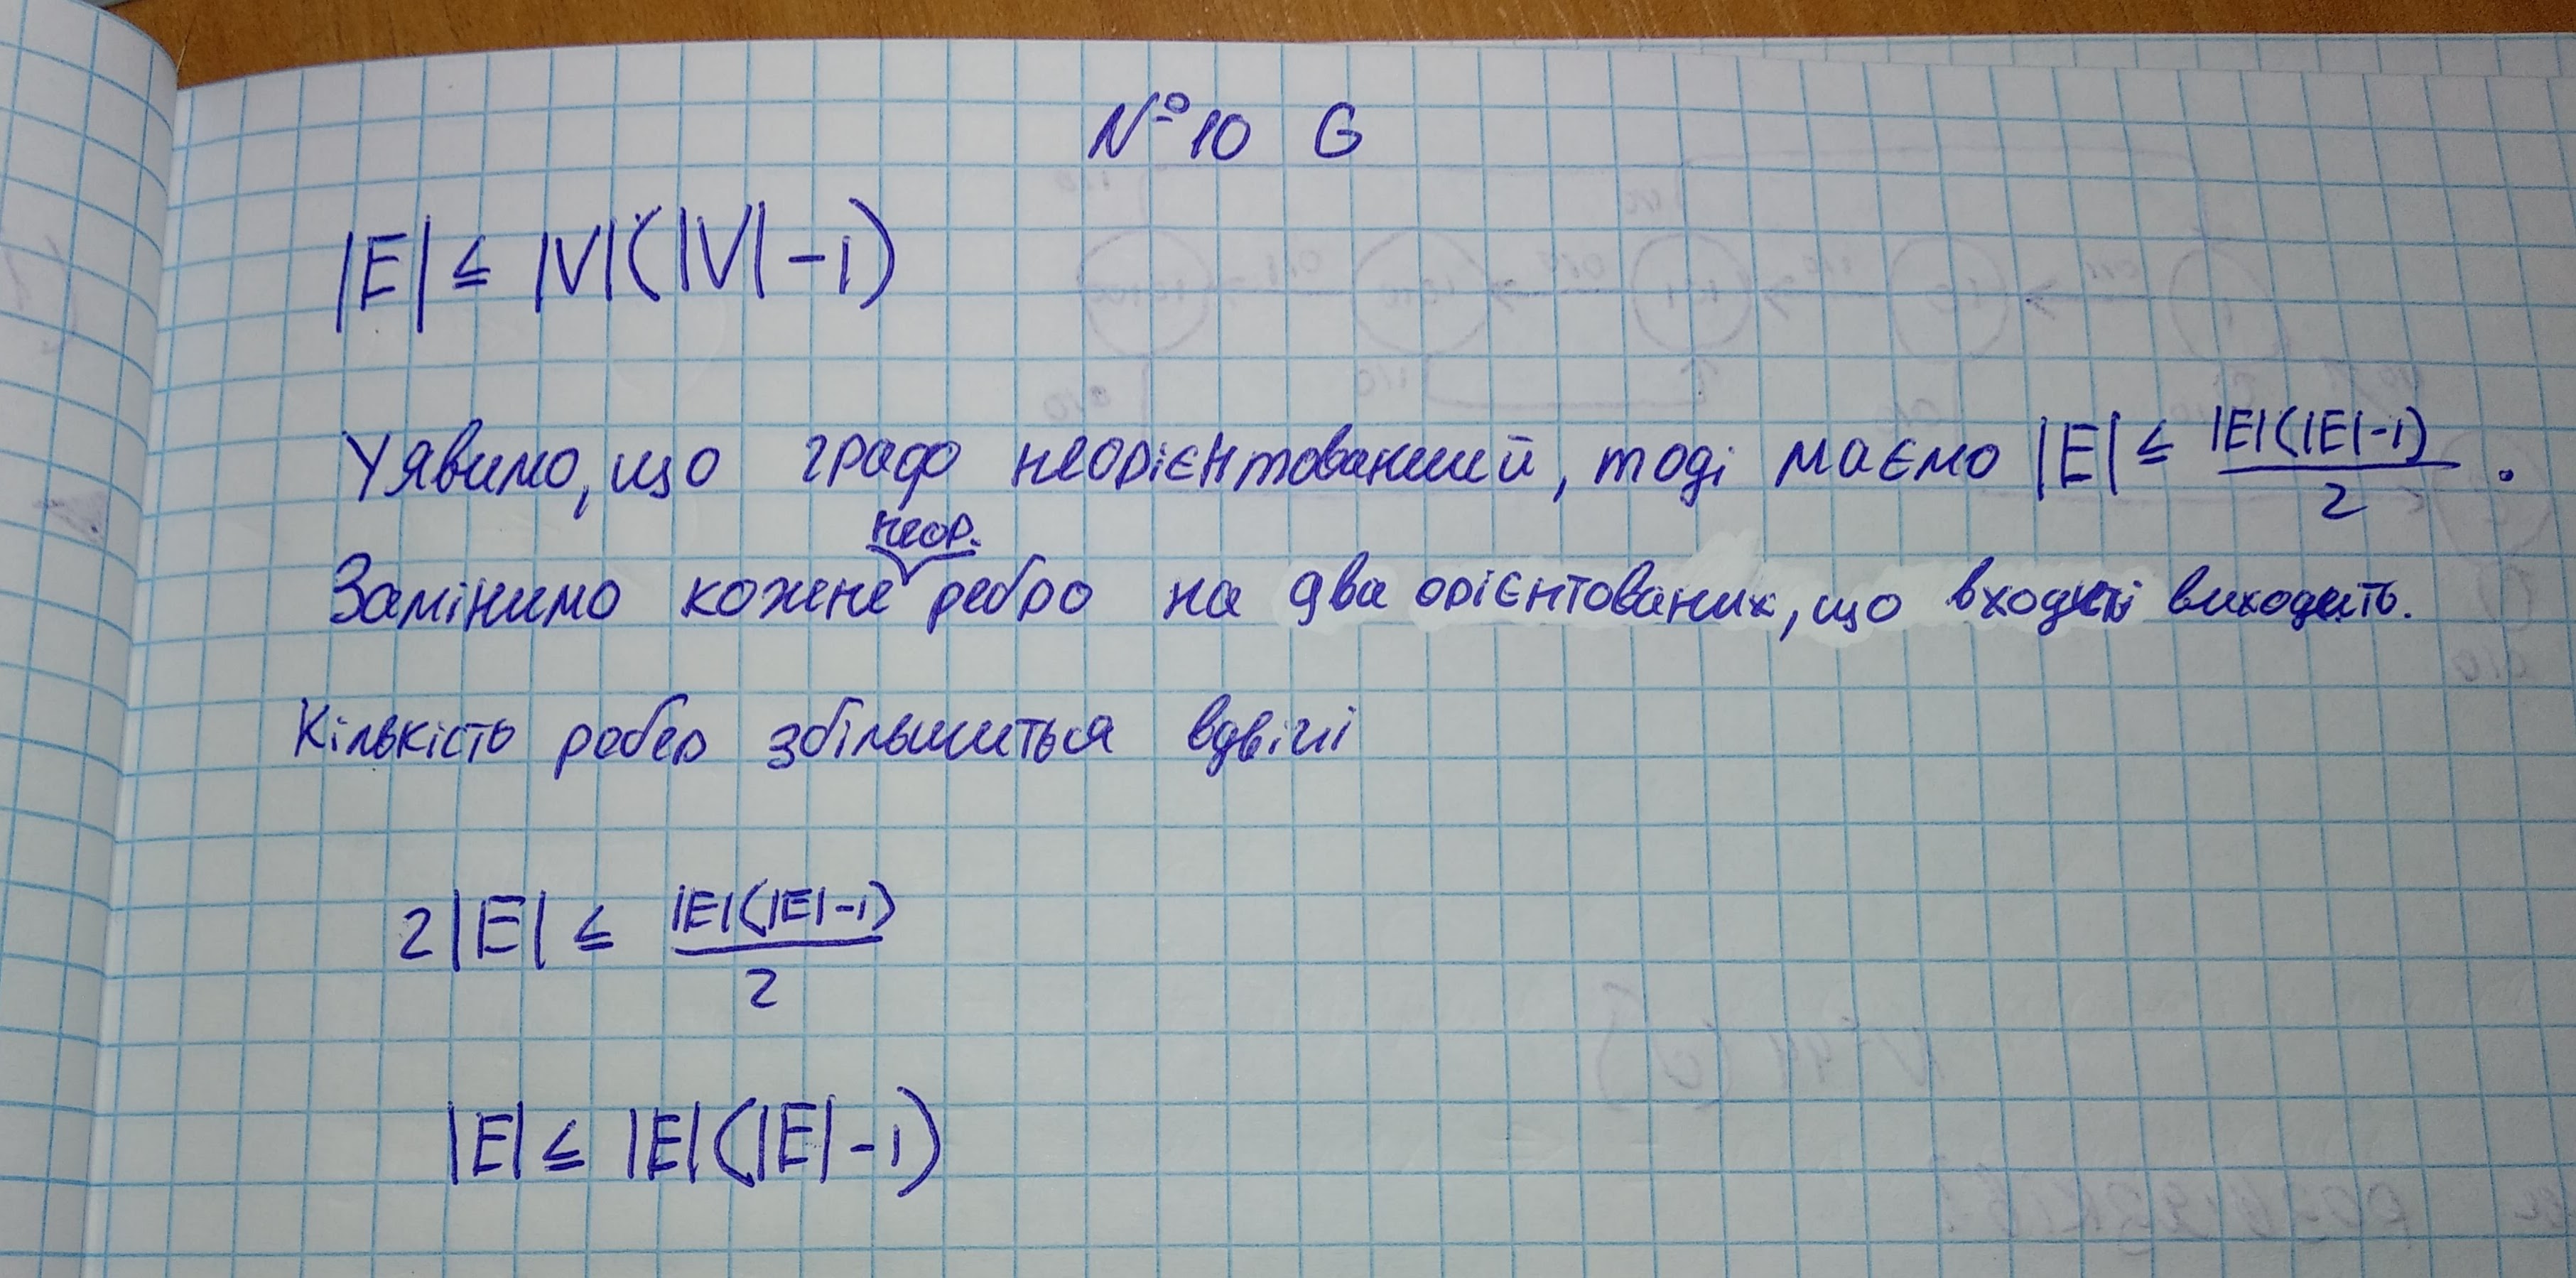 №10 G
|E| ≤ |V|(|V|-1)
Уявимо, що граф неорієнтований, тоді маємо |E| ≤ |E|(|E|-1)/2.
неор.
Замінимо кожене ребро на два орієнтованих, що входить і виходить.
Кількість ребер збільшиться вдвічі
2|E| ≤ |E|(|E|-1)/2
|E| ≤ |E|(|E|-1)